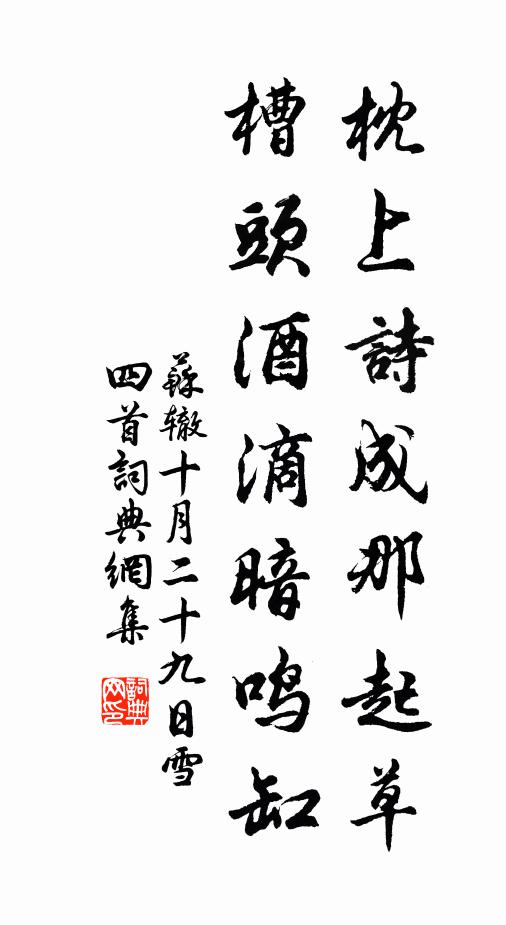 枕上詩成那起草
槽頭酒滴暗鳴缸
蘇辙十月二十九日雪
四首詞典網集
詞典
网印